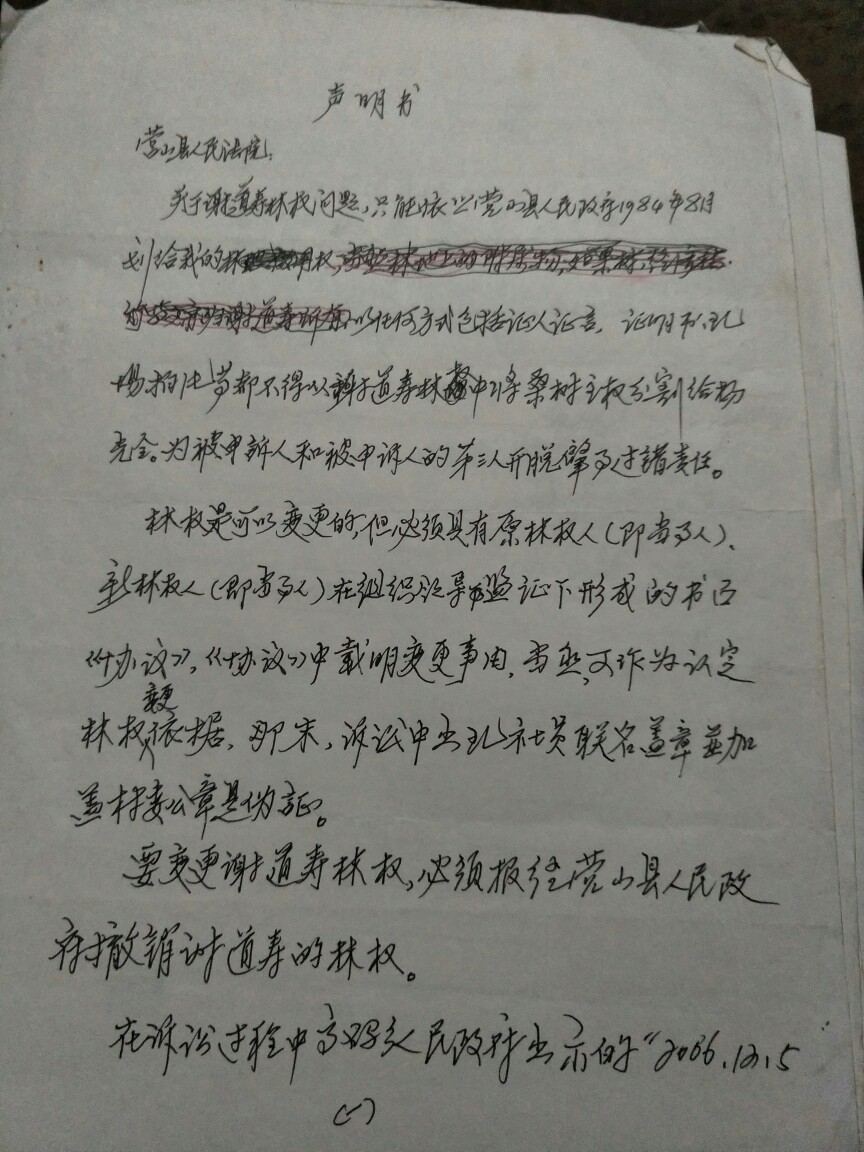 声明书
营山县人民法院:
关于谢道寿林权问题,只能依照营山县人民政府1984年8月
划给我的林权
以任何方式包括证人证言,证明书、现
场拍照等都不得从谢道寿林中将桑树主权分割给杨
光全。为被申訴人和被申诉人的第三人开脱肇事过错责任。
林权是可以变更的,但必须具有原林权人(即当事人)、
新林权人(即当事人)在组织领导监证下形成的书面
《协议》,《协议》中载明变更事由,当然可作为认定
林权变更依据,那末,诉讼中出现社员联名盖章并加
盖村委公章是伪证。
要变更谢道寿林权,必须报经营山县人民政
府撤销谢道寿的林权。
在诉讼过程中高码乡人民政府出示的“2006.12.5
(一)